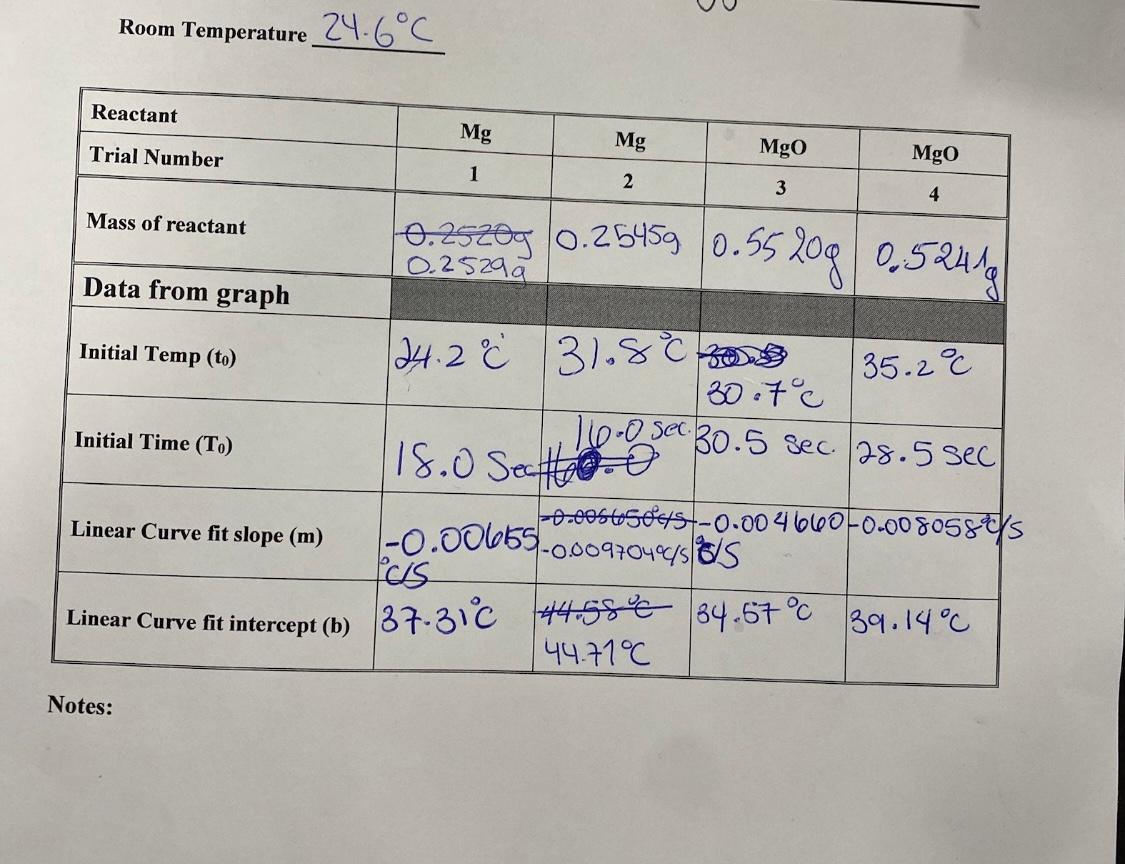 Room Temperature 24.6°C
Reactant Mg Mg MgO MgO
Trial Number 1 2 3 4
Mass of reactant 0.2520g 0.2529g 0.2545g 0.5520g 0.5241g
Data from graph
Initial Temp (t₀) 24.2°C 31.8°C 30.7°C 35.2°C
Initial Time (T₀) 18.0 Sec 16.0 sec. 30.5 sec. 28.5 sec
Linear Curve fit slope (m) -0.00655 °C/S -0.009704°C/S -0.004660 °C/S -0.008058°C/S
Linear Curve fit intercept (b) 37.31°C 44.58°C 44.71°C 34.57°C 39.14°C
Notes: